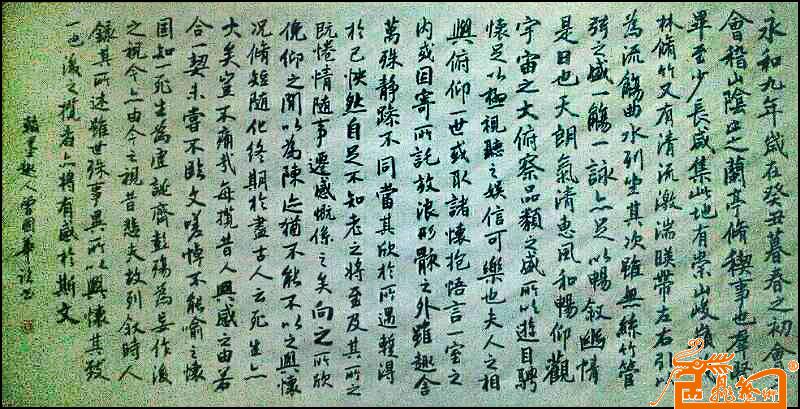 永和九年歲在癸丑暮春之初會
會稽山陰之蘭亭脩禊事也群賢
畢至少長咸集此地有崇山峻嶺
林脩竹又有清流激湍暎帶左右引以
為流觴曲水列坐其次雖無絲竹管
弦之盛一觴一詠亦足以暢敘幽情
是日也天朗氣清惠風和暢仰觀
宇宙之大俯察品類之盛所以遊目騁
懷足以極視聽之娛信可樂也夫人之相
與俯仰一世或取諸懷抱悟言一室之
內或因寄所託放浪形骸之外雖趣舍
萬殊靜躁不同當其欣於所遇蹔得
於己怏然自足不知老之將至及其所之
既惓情隨事遷感慨係之矣向之所欣
俛仰之閒以為陳迹猶不能不以之興懷
況脩短隨化終期於盡古人云死生亦
大矣豈不痛哉每攬昔人興感之由若
合一契未嘗不臨文嗟悼不能喻之懷
固知一死生為虛誕齊彭殤為妄作後
之視今亦由今之視昔悲夫故列敘時人
錄其所述雖世殊事異所以興懷其致
一也後之攬者亦將有感於斯文
翰墨趣人曾國華